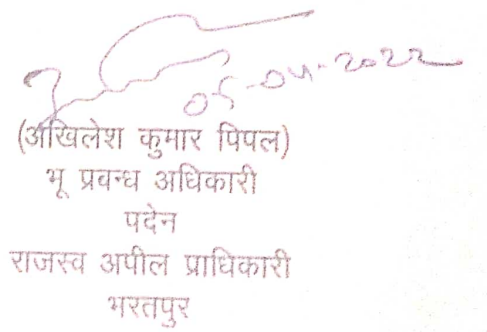 05-04-2022
(अखिलेश कुमार पिपल)
भू प्रवन्ध अधिकारी
पदेन
राजस्व अपील प्राधिकारी
भरतपुर